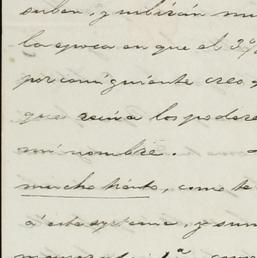 suban, y subirán mu
la epoca en que el 3%
por consiguiente creo q
que reúna los podere
mi nombre.
mucho tiento, como te
á esta systema, y sum